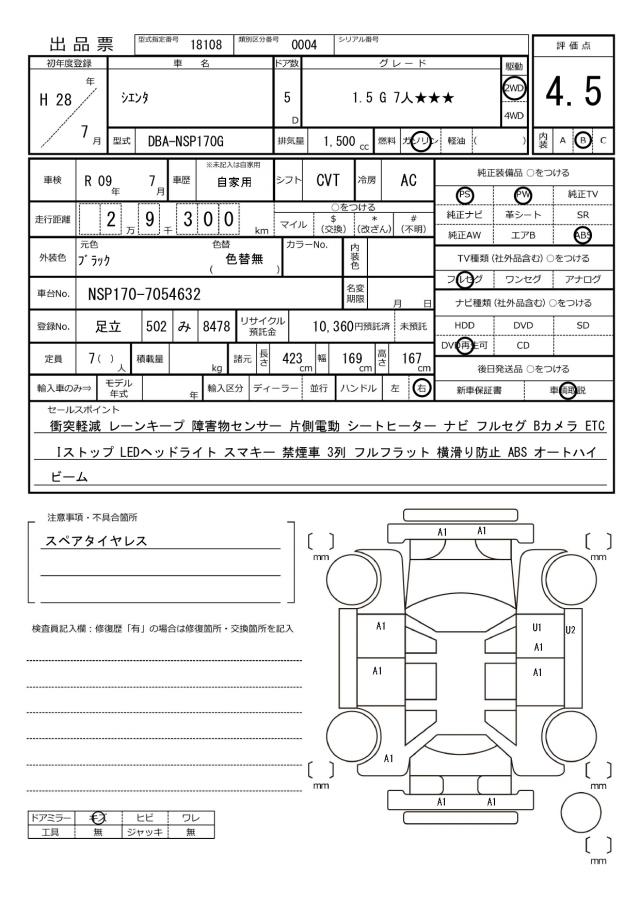 出品票 型式指定番号 18108 類別区分番号 0004 シリアル番号
評価点
初年度登録 車名 ドア数 グレード 駆動
H 28 年 7 月 シエンタ 5 D 1.5 G 7人★★★ 2WD 4WD
4.5
型式 DBA-NSP170G 排気量 1,500 cc 燃料 ガソリン 軽油 ( )
内装 A B C
車検 R 09 年 7 月 車歴 ※未記入は自家用 自家用 シフト CVT 冷房 AC
純正装備品 ○をつける
PS PW 純正TV
走行距離 2 万 9 千 3 0 0 km ○をつける
マイル $ (交換) * (改ざん) # (不明)
純正ナビ 革シート SR
純正AW エアB ABS
外装色 元色 ブラック 色替 ( 色替無 ) カラーNo. 内装色
TV種類 (社外品含む) ○をつける
フルセグ ワンセグ アナログ
車台No. NSP170-7054632 名変期限 月 日
ナビ種類 (社外品含む) ○をつける
登録No. 足立 502 み 8478 リサイクル預託金 10,360円預託済 未預託
HDD DVD SD
DVD再生可 CD
定員 7( ) 人 積載量 kg 諸元 長さ 423 cm 幅 169 cm 高さ 167 cm
後日発送品 ○をつける
輸入車のみ⇒ モデル年式 年 輸入区分 ディーラー 並行 ハンドル 左 右
新車保証書 車輌取説
セールスポイント
衝突軽減 レーンキープ 障害物センサー 片側電動 シートヒーター ナビ フルセグ Bカメラ ETC
Iストップ LEDヘッドライト スマキー 禁煙車 3列 フルフラット 横滑り防止 ABS オートハイ
ビーム
注意事項・不具合箇所
スペアタイヤレス
検査員記入欄:修復歴「有」の場合は修復箇所・交換箇所を記入
A1 A1
mm mm
A1 U1 U2
A1
A1 A1
A1
mm mm
A1 A1
mm
ドアミラー キズ ヒビ ワレ
工具 無 ジャッキ 無